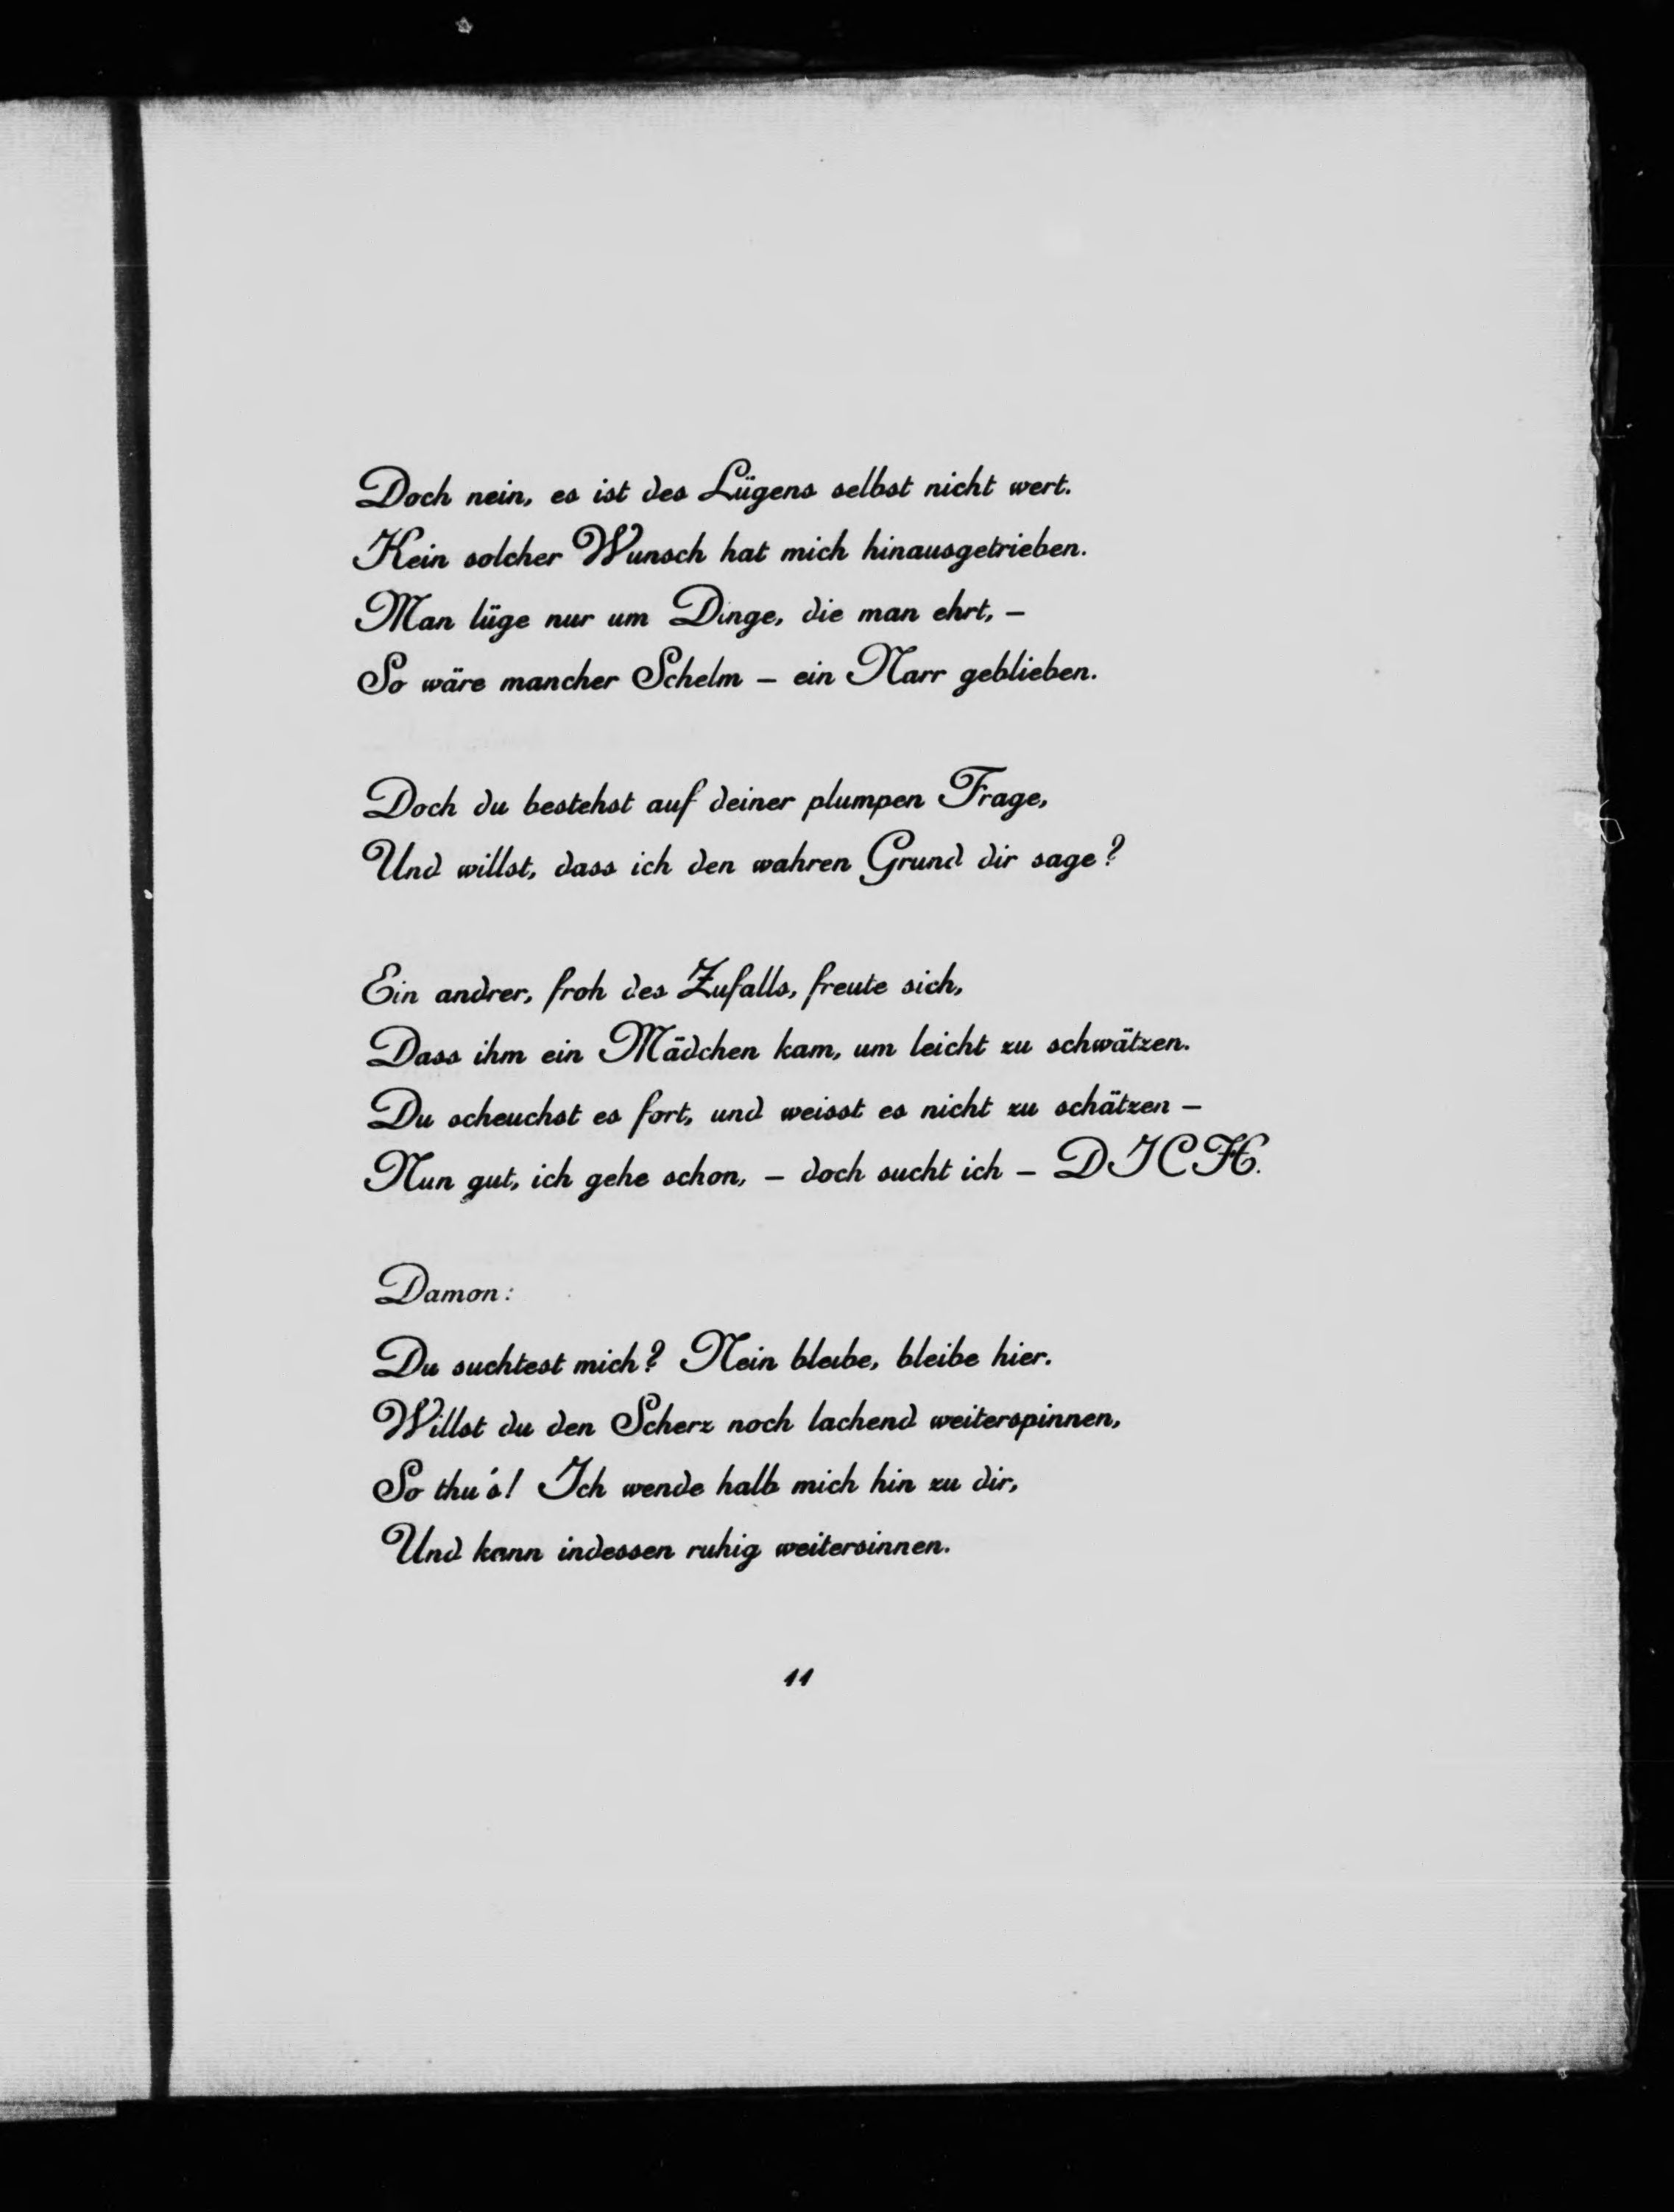 Doch nein, es ist des Lügens selbst nicht wert.
Kein solcher Wunsch hat mich hinausgetrieben.
Man lüge nur um Dinge, die man ehrt, –
So wäre mancher Schelm – ein Narr geblieben.
Doch du bestehst auf deiner plumpen Frage,
Und willst, dass ich den wahren Grund dir sage?
Ein andrer, froh des Zufalls, freute sich,
Dass ihm ein Mädchen kam, um leicht zu schwätzen.
Du scheuchst es fort, und weisst es nicht zu schätzen –
Nun gut, ich gehe schon, – doch sucht ich – DICH.
Damon:
Du suchtest mich? Nein bleibe, bleibe hier.
Willst du den Scherz noch lachend weiterspinnen,
So thu's! Ich wende halb mich hin zu dir,
Und kann indessen ruhig weitersinnen.
11